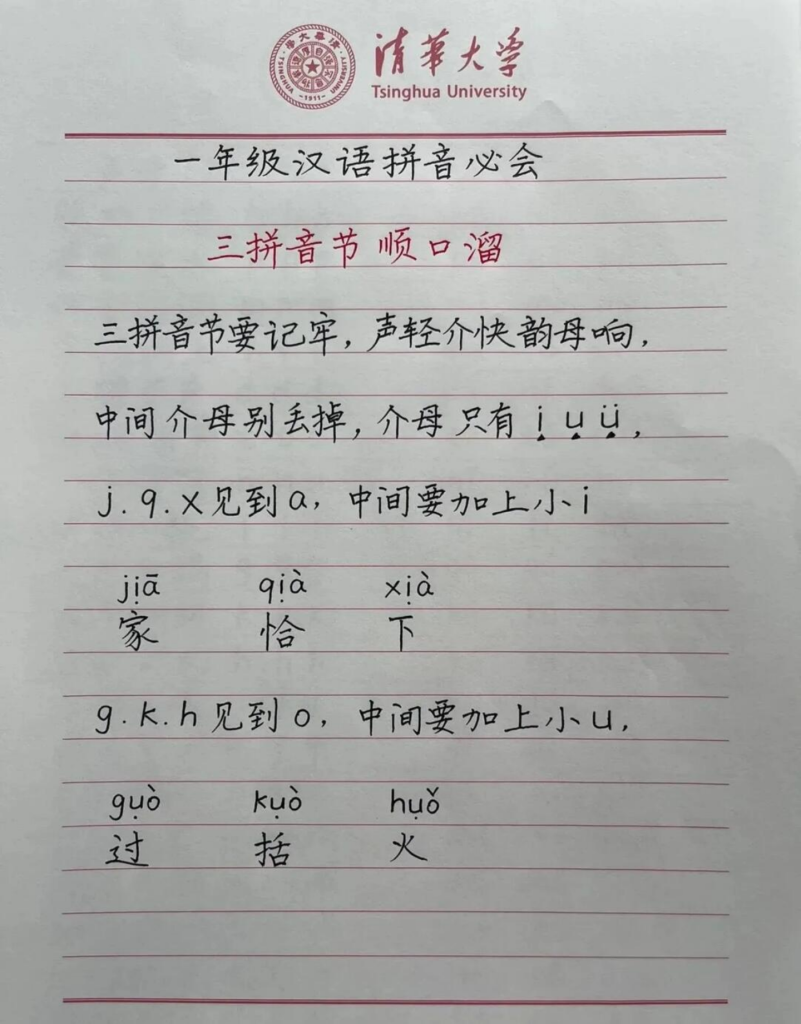 清华大学
Tsinghua University
一年级汉语拼音必会
三拼音节顺口溜
三拼音节要记牢,声轻介快韵母响,
中间介母别丢掉,介母只有 i u ü,
j.q.x见到a,中间要加上小i
jiā qià xià
家 恰 下
g.k.h见到o,中间要加上小u,
guò kuò huǒ
过 括 火